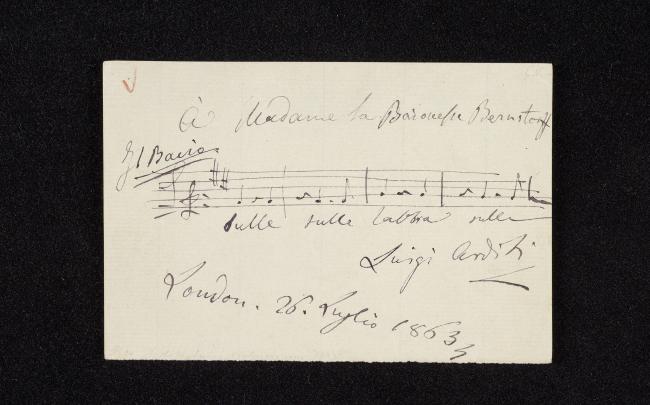 à Madame la Baronesse Bernstorff
Il Bacio
Sulle sulle labbra sulle
Luigi Arditi
London. 26. Luglio 1863